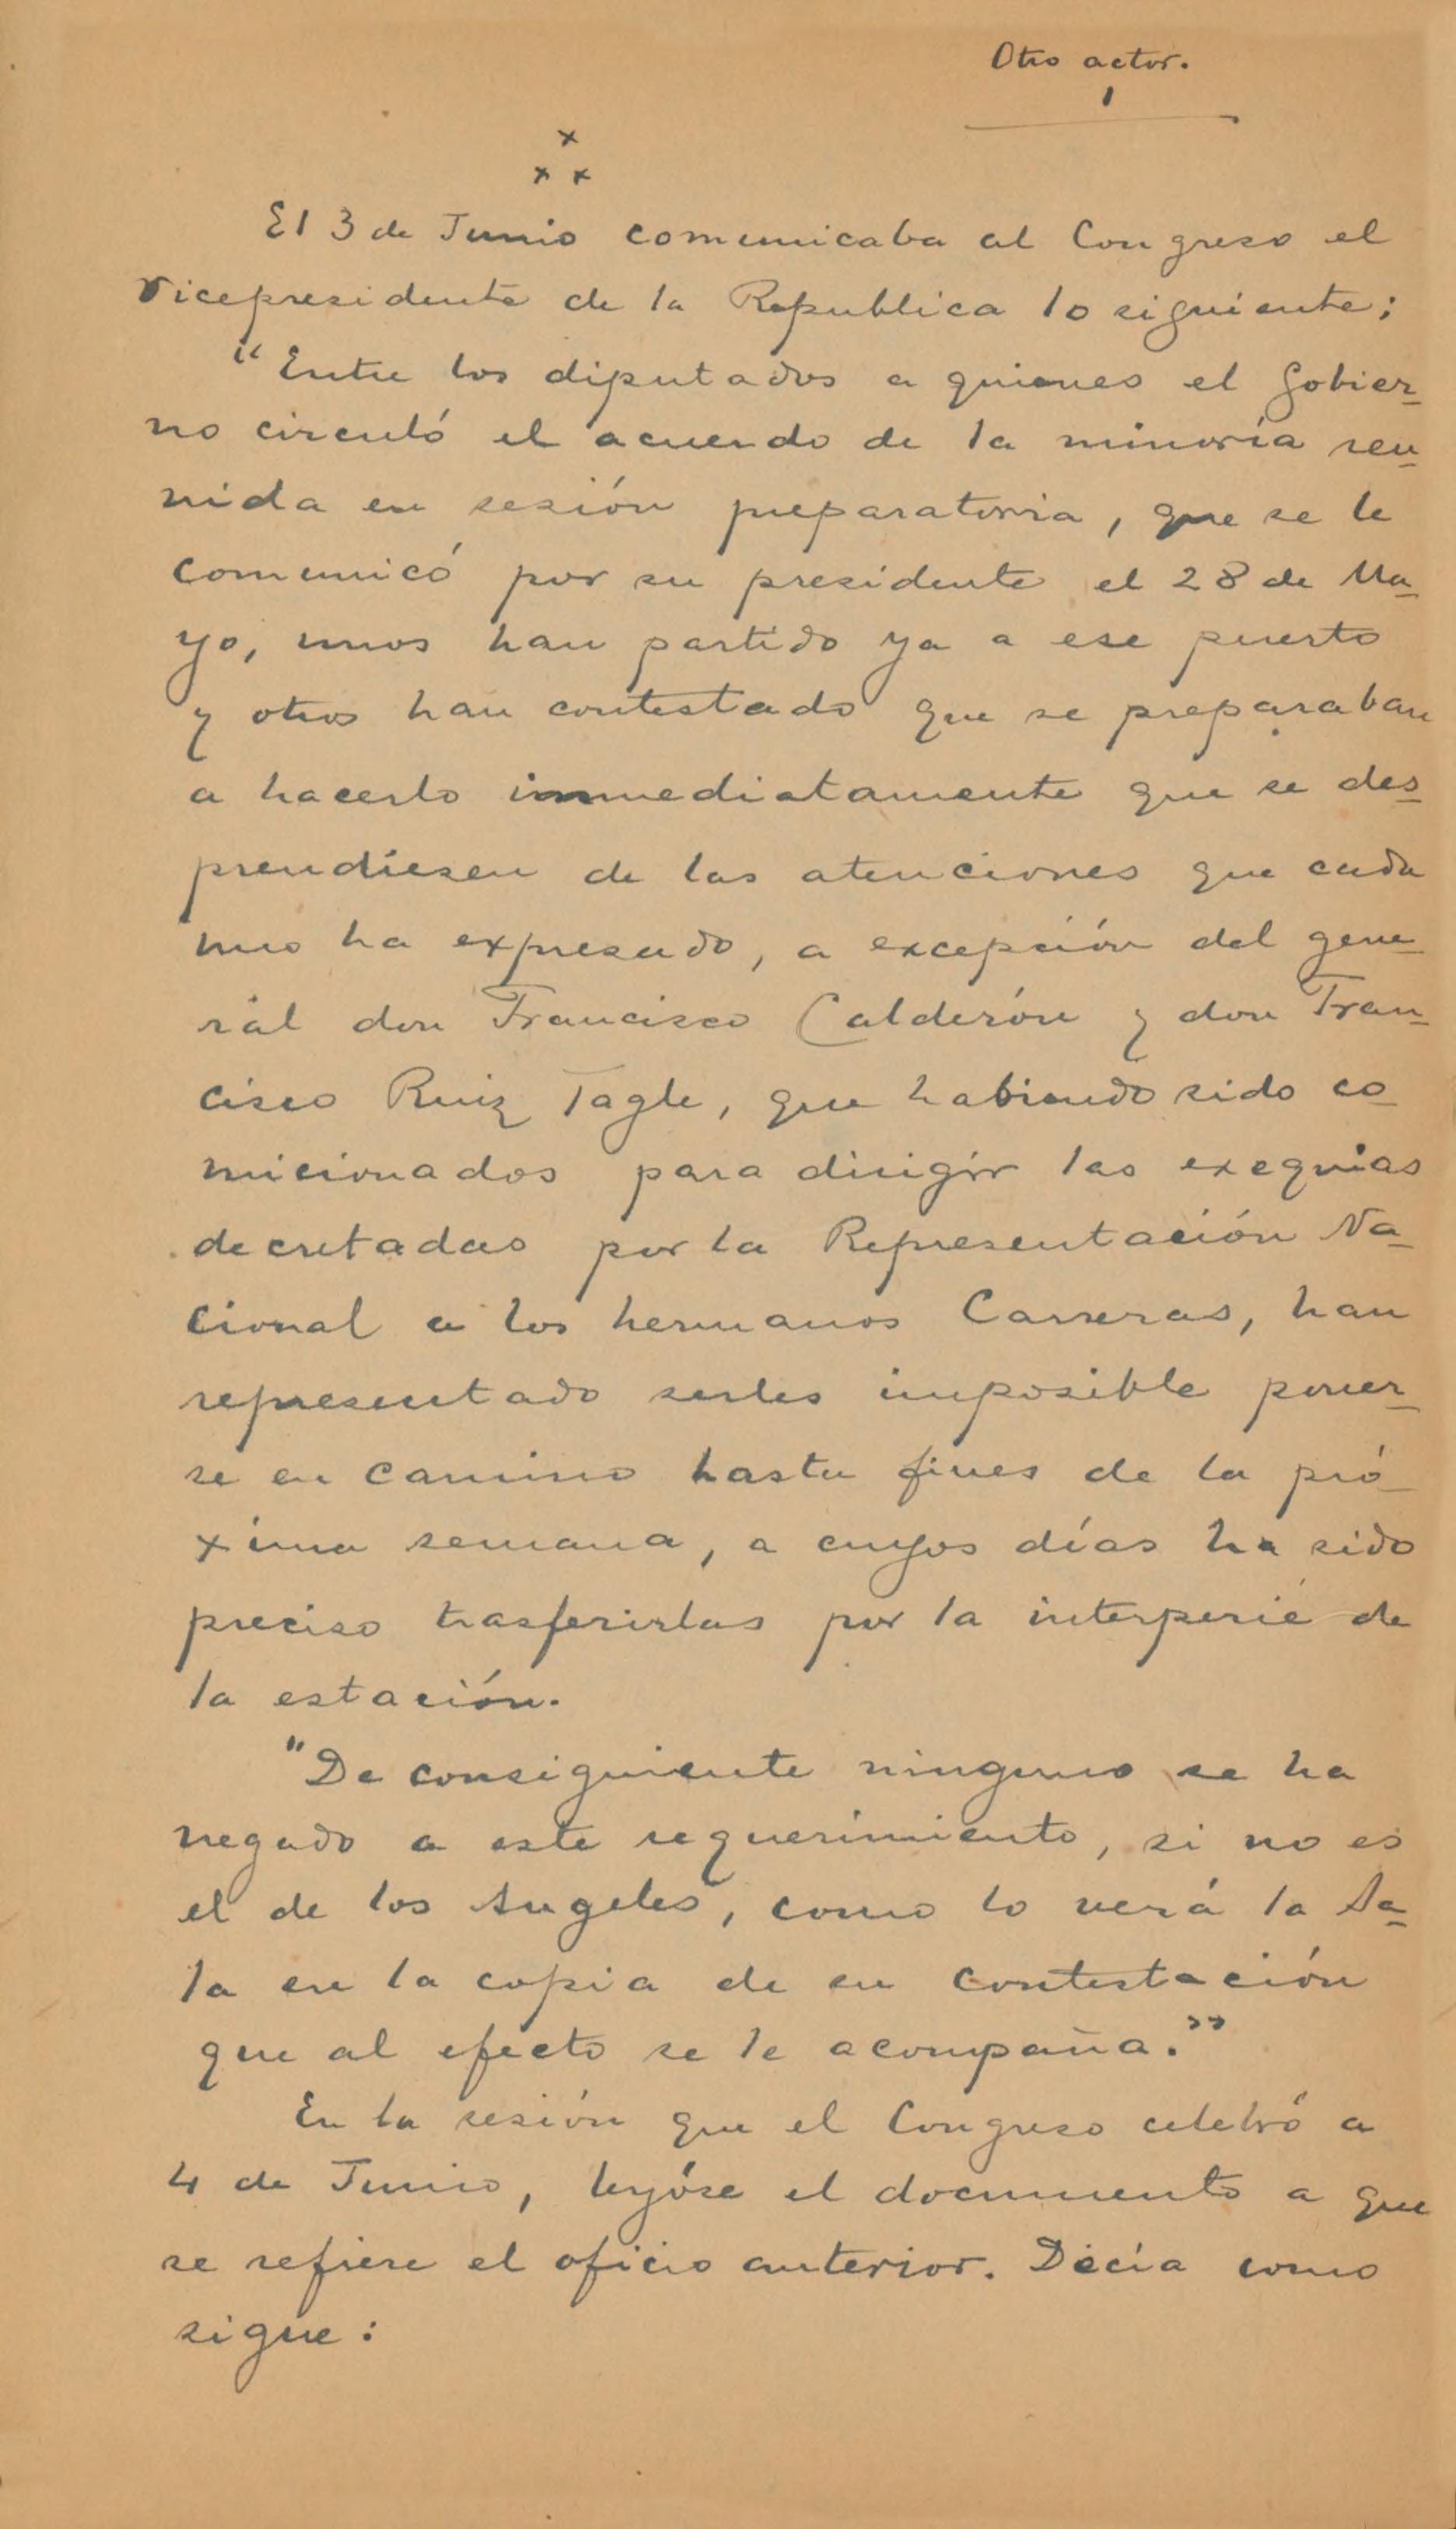 Otro actor.
1
x
x x
El 3 de Junio comunicaba al Congreso el
Vicepresidente de la Republica lo siguiente;
"Entre los diputados a quienes el Gobier-
no circuló el acuerdo de la minoría reu-
nida en sesión preparatoria, que se le
comunicó por su presidente el 28 de Ma-
yo, unos han partido ya a ese puerto
y otros han contestado que se preparaban
a hacerlo inmediatamente que se des-
prendiesen de las atenciones que cada
uno ha expresado, a excepción del gene-
ral don Francisco Calderón y don Fran-
cisco Ruiz Tagle, que habiendo sido co-
micionados para dirigir las exequias
decretadas por la Representación Na-
cional a los hermanos Carreras, han
representado serles imposible poner-
se en camino hasta fines de la pró-
xima semana, a cuyos días ha sido
preciso trasferirlas por la interperie de
la estación.
"De consiguiente ninguno se ha
negado a este requerimiento, si no es
el de los Angeles, como lo verá la Sa-
la en la copia de su contestación
que al efecto se le acompaña."
En la sesión que el Congreso celebró a
4 de Junio, leyóse el documento a que
se refiere el oficio anterior. Decía como
sigue: